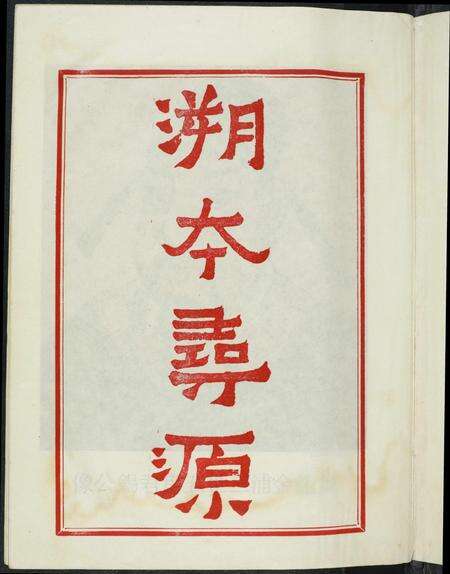 溯本尋源